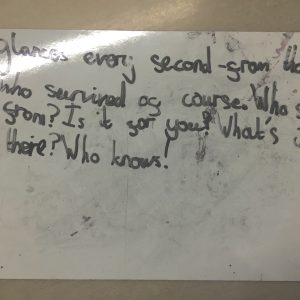 glances every second-from
who survived of course. Who
from? Is it for you? What's
there? Who knows!